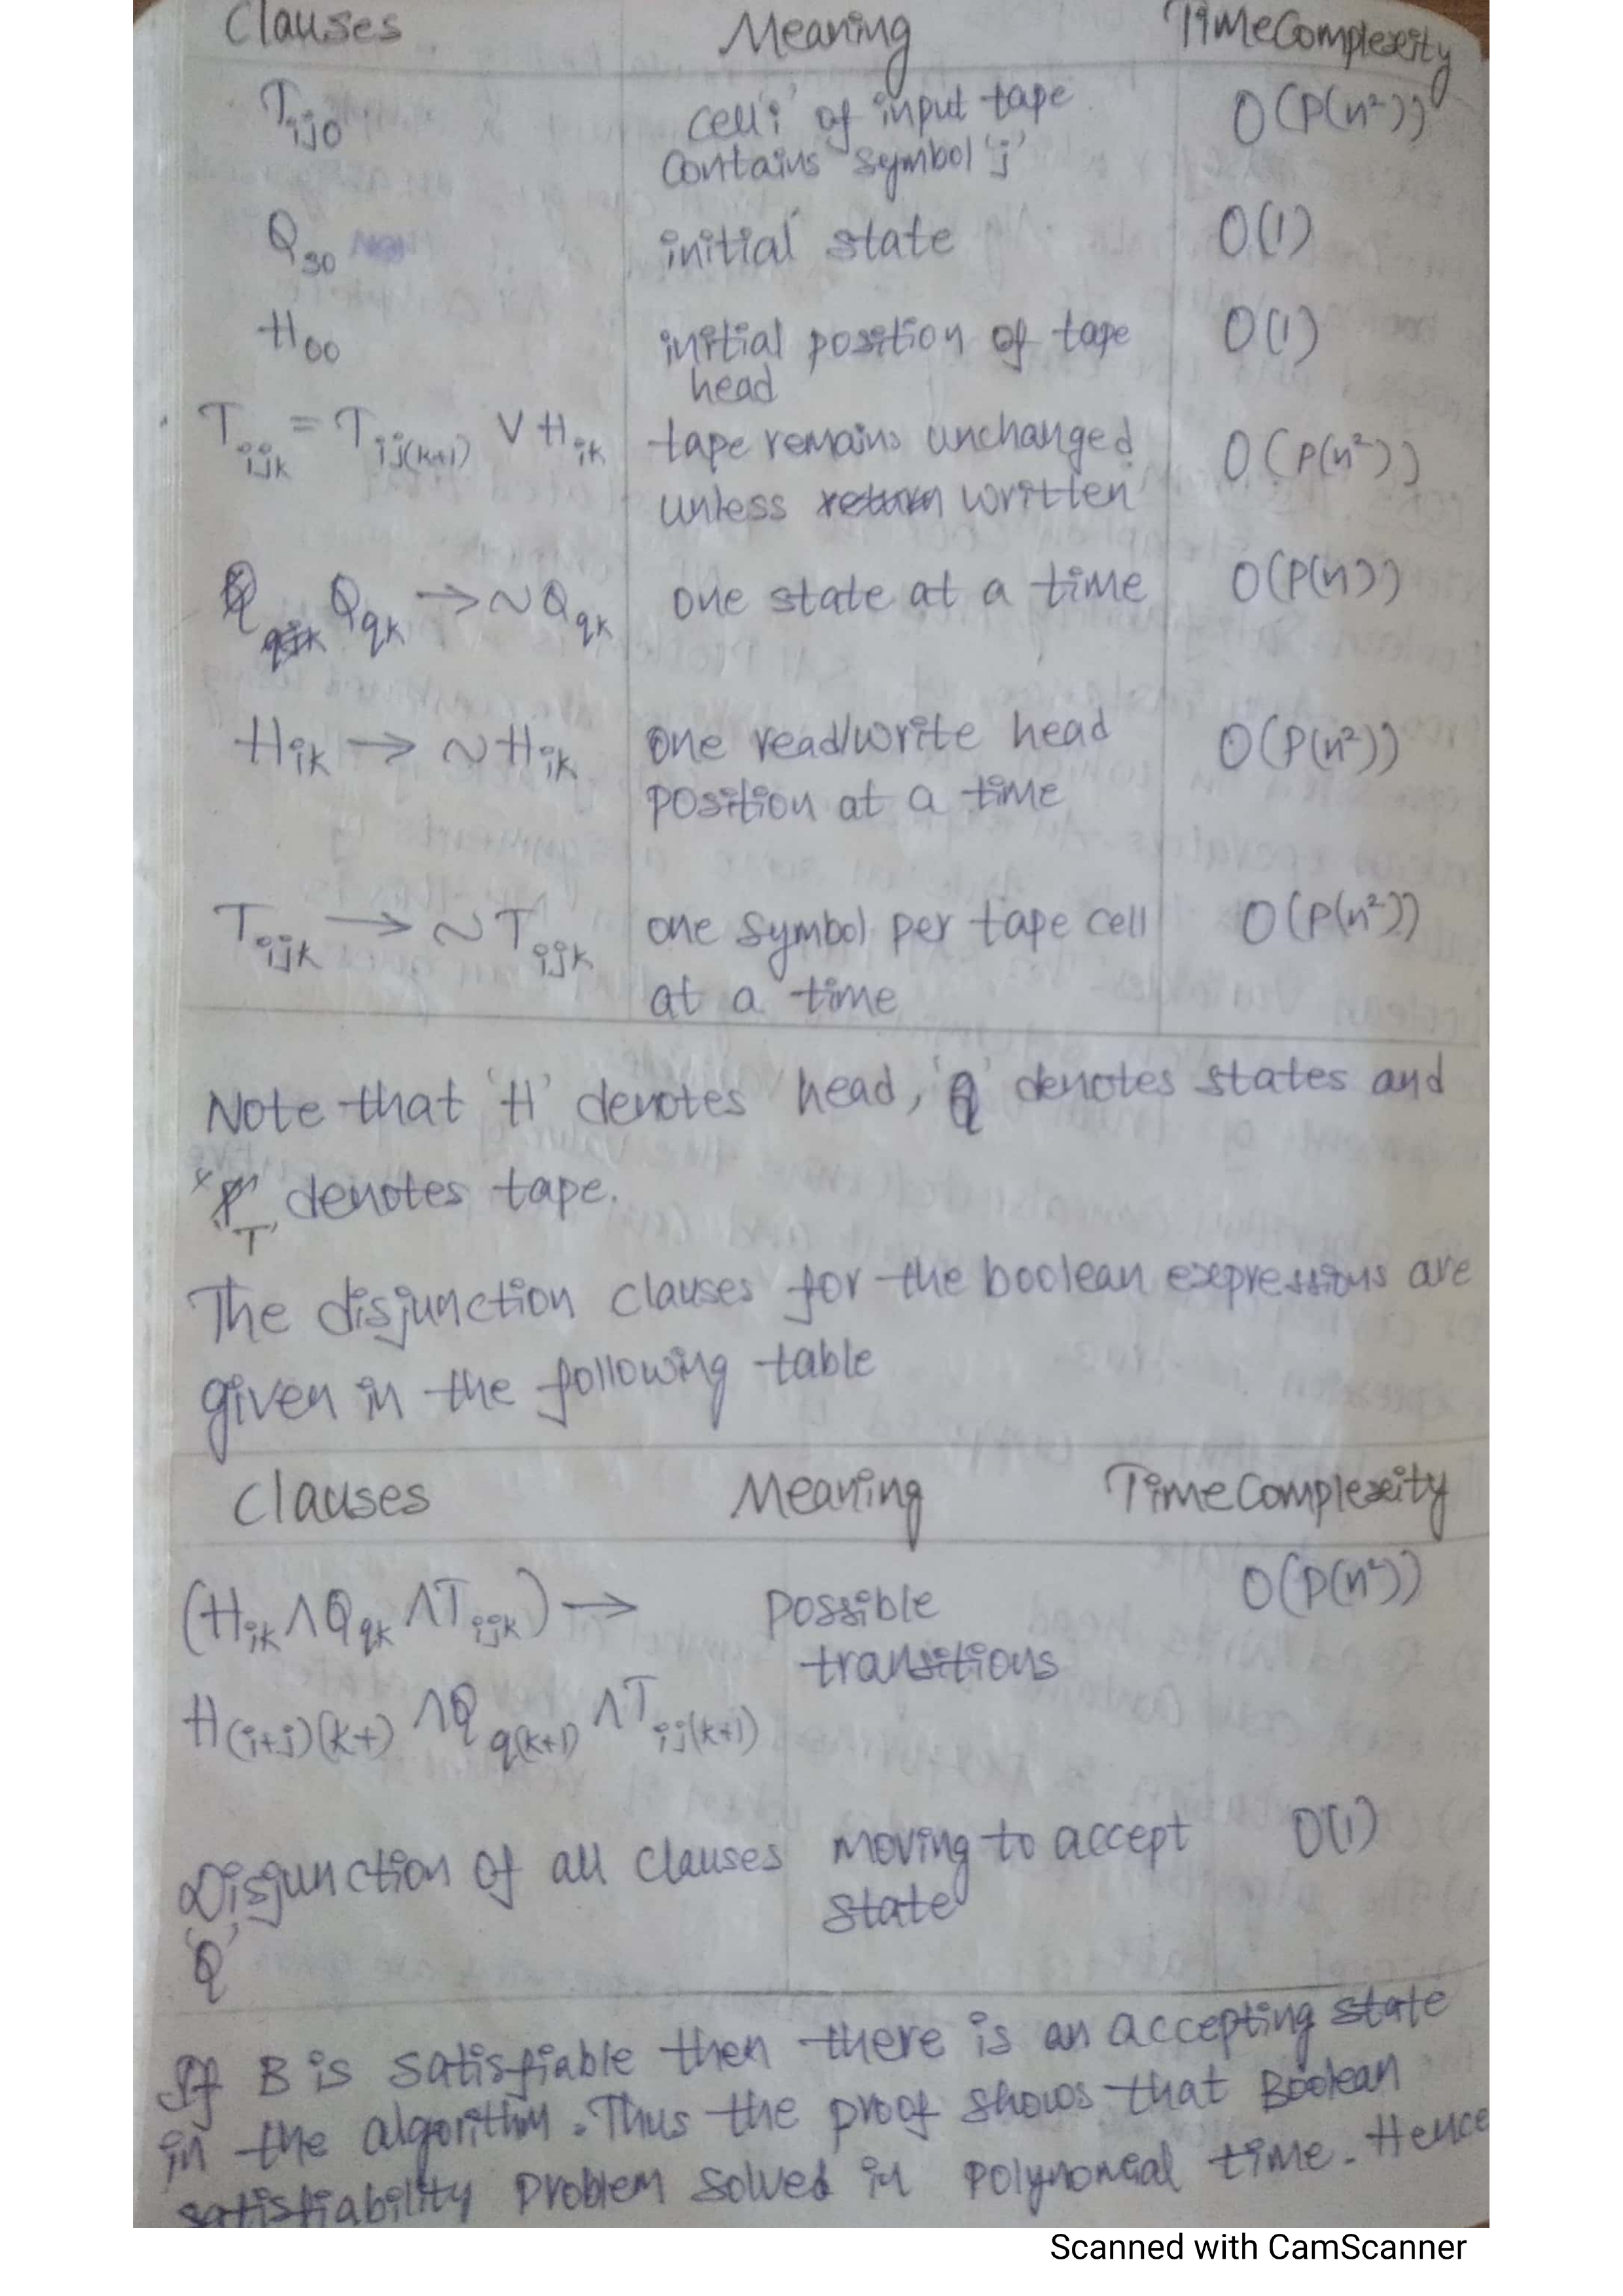 Clauses Meaning TimeComplexity
T_ij0 cell 'i' of input tape O(P(n²))
contains symbol 'j'
Q_s0 initial state O(1)
H_00 initial position of tape O(1)
head
T_ijk = T_ij(k+1) ∨ H_ik tape remains unchanged O(P(n²))
unless written
Q_qk → ~Q_qk one state at a time O(P(n))
H_ik → ~H_ik one read/write head O(P(n²))
position at a time
T_ijk → ~T_ijk one symbol per tape cell O(P(n²))
at a time
Note that 'H' denotes head, 'Q' denotes states and
'T' denotes tape.
The disjunction clauses for the boolean expressions are
given in the following table
Clauses Meaning TimeComplexity
(H_ik ∧ Q_qk ∧ T_ijk) → possible O(P(n²))
transitions
H_(i+j)(k+) ∧ Q_q(k+1) ∧ T_ij(k+1)
Disjunction of all clauses moving to accept O(1)
state
'Q'
If B is satisfiable then there is an accepting state
in the algorithm. Thus the proof shows that Boolean
satisfiability problem solved in polynomial time. Hence
Scanned with CamScanner